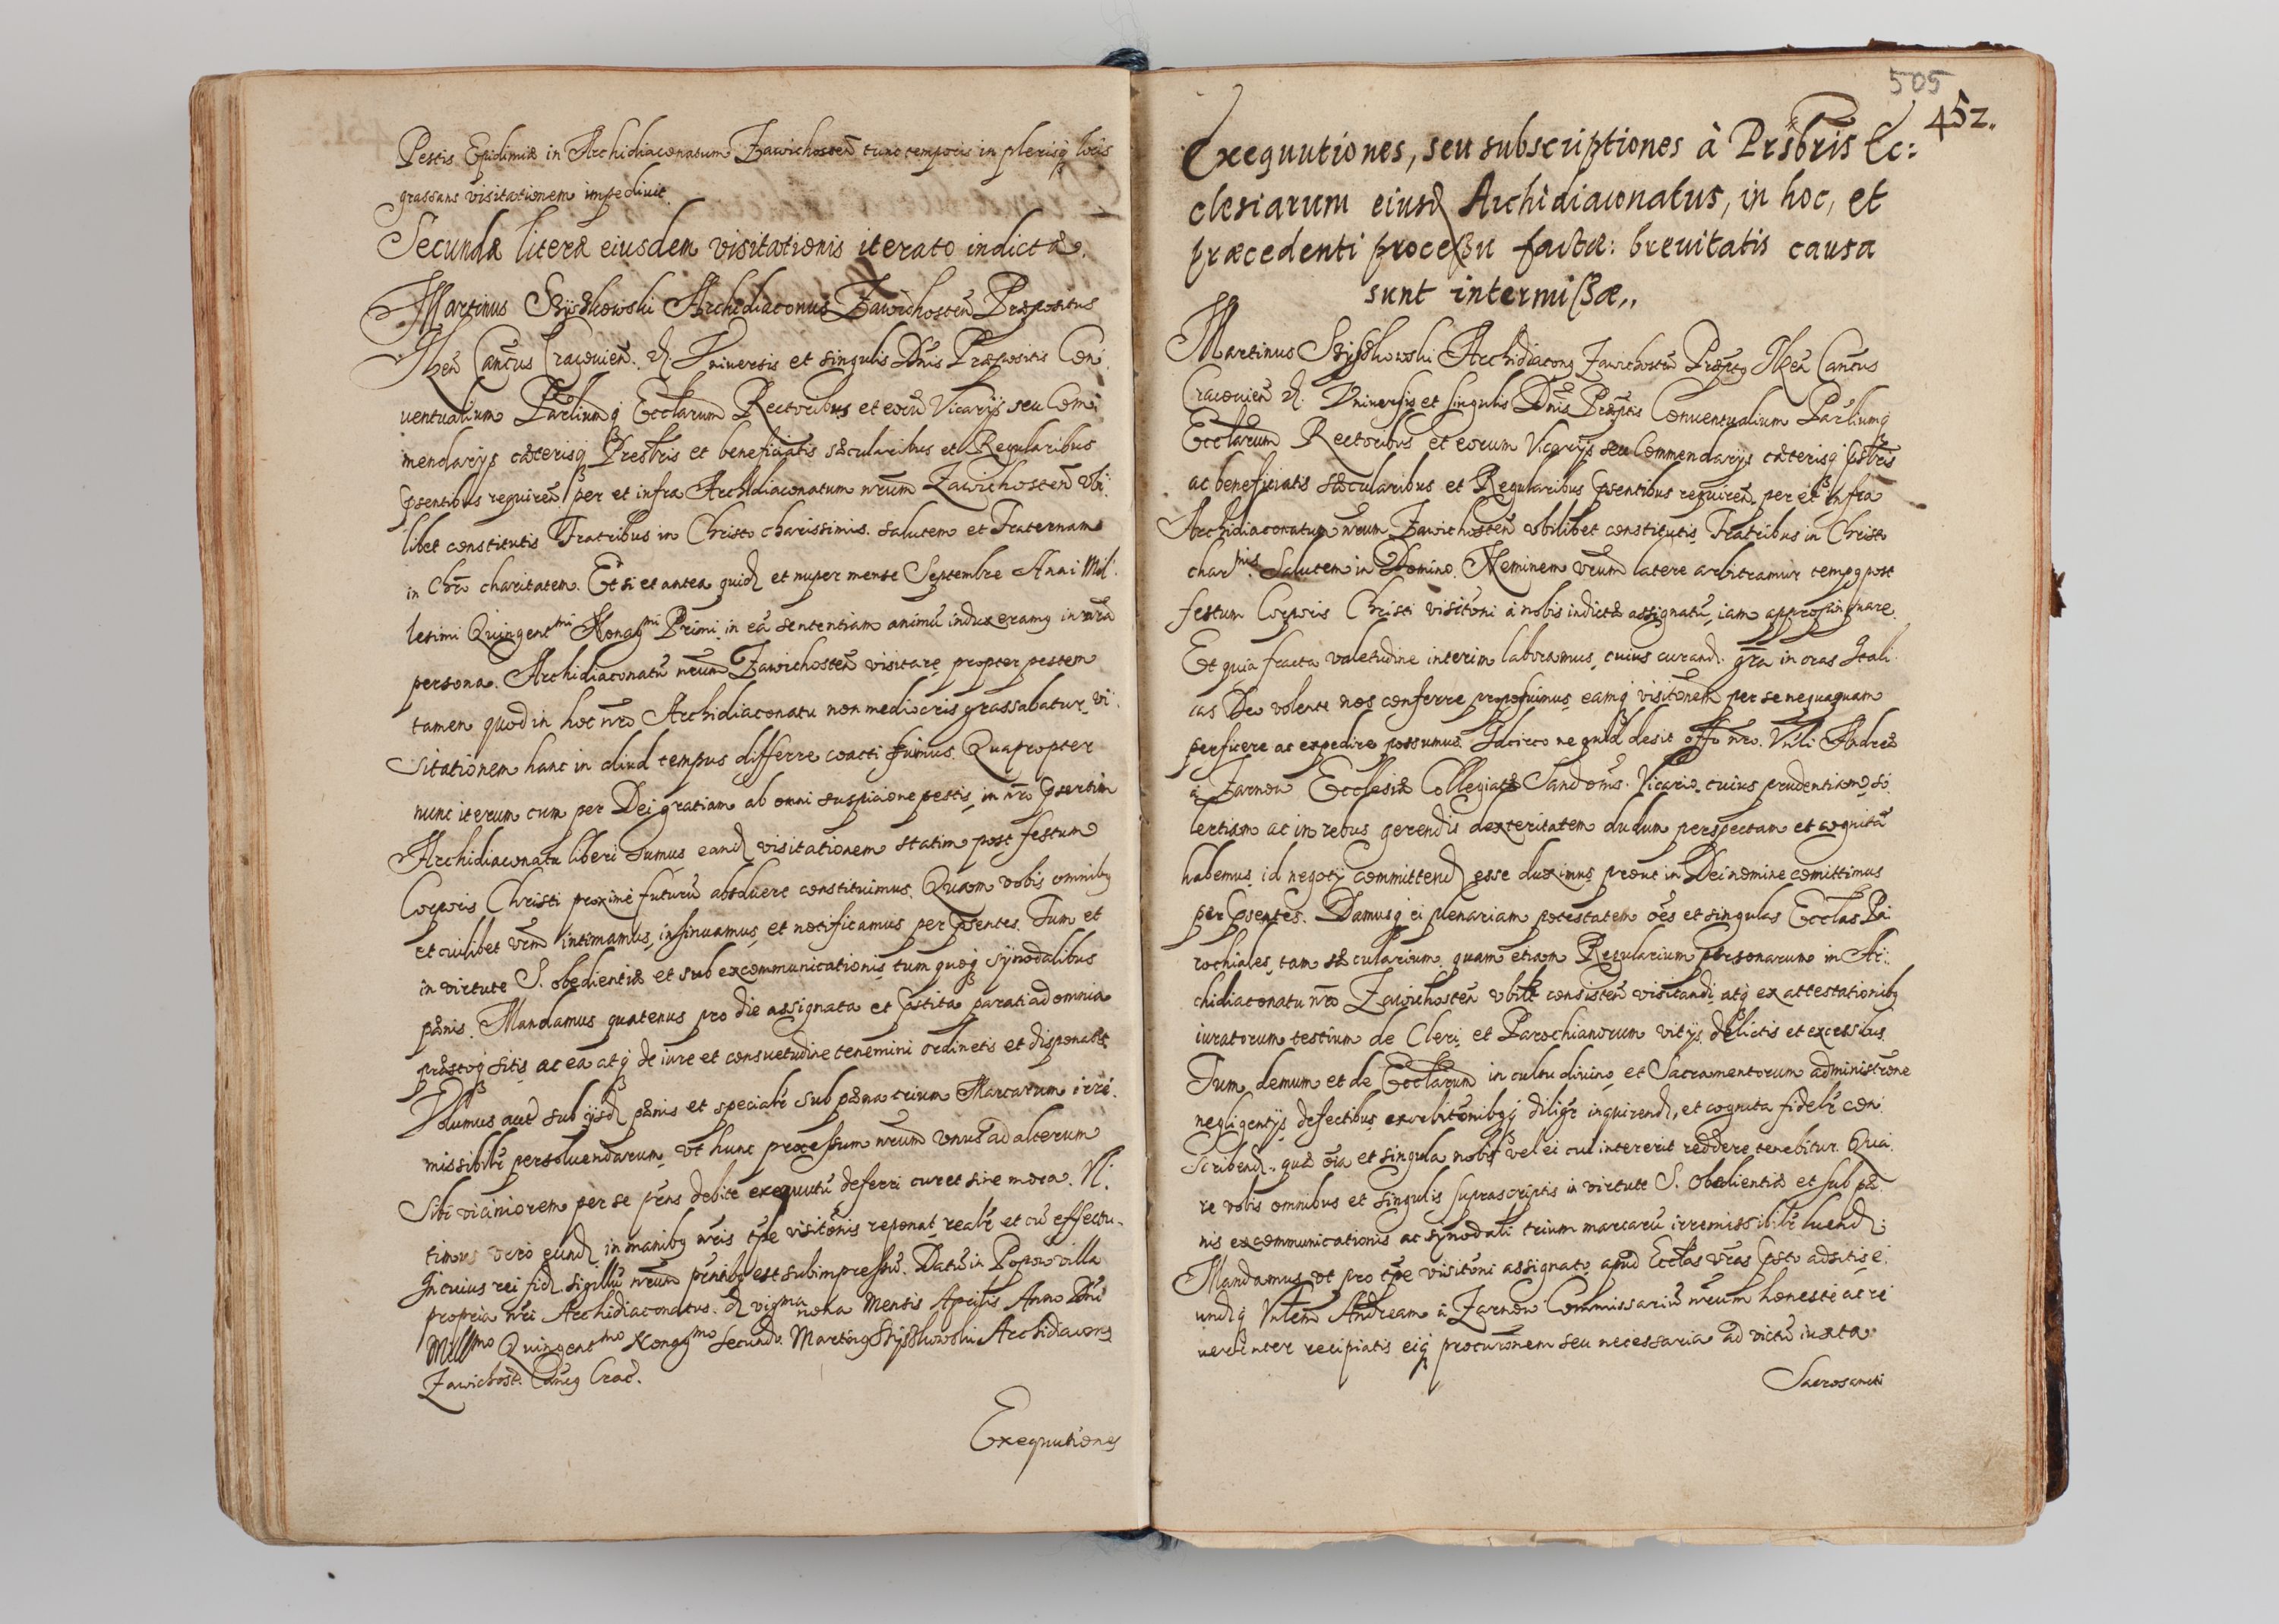 Pestis Epidimiæ in Archidiaconatum Zawichosten̄ tunc temporis in plerisq̃ locis
grassans visitationem impediuit.
Secundæ literæ eiusdem visitationis iterato indictæ.
Martinus Szÿszkowski Archidiaconus Zawichosten̄ Præpositus
Ilzen̄ Canc̃us Cracouien̄. Vniuersis et singulis Dñis Præpositis Con:
uentualium Parãliumq̃ Eccłarum Rectoribus et eorũ Vicarijs seu Com:
mendarijs cæterisq̃ Presbr̃is et beneficiatis sæcularibus et Regularibus
p̃sentibus requiren̄. per et infra Archidiaconatum nr̃um Zawichosten̄ Vbi:
libet constitutis Fratribus in Christo charissimis. salutem et Fraternam
in Chr̃o charitatem. Etsi et antea quid et nuper mense Septembre Anni Mil:
lesimi Quingentmi Nonagmi Primi in eã sententiam animũ induxeramq in nr̃a
persona. Archidiaconatũ nr̃um Zawichosten̄ visitare, propter pestem
tamen quod in hoc nr̃o Archidiaconatu non mediocris grassabatur, vi:
sitationem hanc in aliud tempus differre coacti fuimus. Quapropter
nunc iterum cum per Dei gratiam ab omni suspicione pestis, in nr̃o p̃sertim
Archidiaconatu liberi sumus eand visitationem statim post festum
Corporis Christi proxime futurũ absoluere constituimus. Quam vobis omnibq
et cuilibet vr̃m intimamus, insinuamus, et notificamus per p̃sentes. Tum et
in virtute S. obedientiæ et sub excommunicationis, tum quoq̃ sÿnodalibus
pænis. Mandamus quatenus pro die assignata et p̃stita parati ad omnia
præstoq̃ sitis, ac ea atq̃ de iure et consuetudine tenemini ordinetis et disponatis.
Volumus aut sub ijsd pænis et specialr̃ sub pæna trium Marcarum irre:
missibilr̃ persoluendarum, vt hunc processum nr̃um vnus ad alterum
sibi viciniorem per se p̃ens debite exequutũ deferri curet sine mora. Vl:
timus vero eund in manibq nr̃is tp̃e visitõnis reponat realr̃ et cũ effectu.
In cuius rei fid sigillũ nr̃um p̃ntibq est subimpressũ. Datũ in Popow villa
propria nr̃i Archidiaconatus. d vigma nona Mensis Aprilis Anno Dñi
Millmo Quingentmo Nonagmo secundo. Martinq Szÿszkowski Archidiaconq
Zawichost. Cancq Crac̃.
Exequutiones
505
452.
Exequutiones, seu subscriptiones à Prsbr̃is Ec:
clesiarum eiusd Archidiaconatus, in hoc, et
præcedenti processu factæ: breuitatis causa
sunt intermissæ,,
Martinus Szÿszkowski Archidiaconq Zawichosten̄ Præptq Ilzen̄ Canc̃us
Cracouien̄. Vniuersis et singulis Dñis Præptis Conuentualium Parãliumq̃
Eccłarum Rectoribus et eorum Vicarijs seu Commendarijs cæterisq̃ P̃sbr̃is
ac beneficiatis sæcularibus et Regularibus p̃sentibus requiren̄. per et infra
Archidiaconatum nr̃um Zawichosten̄ vbilibet constitutis Fratribus in Christo
charmis. Salutem in Domino. Neminem vr̃um latere arbitramur tempq post
festum Corporis Christi visitõni à nobis indictæ assignatũ, iam appropinquare.
Et quia fracta valetudine interim laboramus, cuius curand. gr̃a in oras Itali:
cas Deo volente nos conferre proposuimus, eamq̃ visitõnem per se nequaquam
perficere ac expedire possumus. Idcirco ne quid desit offo nr̃o. Vnl̃i Andreæ
à Żarnow Ecclesiæ Collegiatæ Sandom̃s. Vicario, cuius prudentiam, so:
lertiam ac in rebus gerendis dexteritatem dudum perspectam et cognitã
habemus, id negotij committend esse duximus, prout in Dei nomine comittimus
per p̃sentes. Damusq̃ ei plenariam potestatem om̃es et singulas Eccłas Pa:
rochiales, tam sæcularium, quam etiam Regularium personarum in Ar:
chidiaconatu nr̃o Zawichosten̄ vbilt consisten̄ visitandi, atq̃ ex attestationibq
iuratorum testium de Cleri, et Parochianorum vitijs, delictis et excessibus.
Tum, demum et de Eccłarum in cultu diuino, et Sacramentorum administr̃one
negligentijs, defectibus, exorbitõnibqq̃ diligr̃ inquirend, et cognita fidelr̃ con:
scribend. quæ om̃ia et singula nobis vel ei cui intererit reddere tenebitur. Qua:
re vobis omnibus et singulis suprascriptis in virtute S. Obedientiæ et sub pæ:
nis excommunicationis ac sÿnodali trium marcarũ irremissibilr̃ luend:
Mandamus vt pro tp̃e visitõni assignato, apud Eccłas vr̃as p̃sto adsitis, e:
undq̃ Vnłem Andream à Żarnow Commissariũ nr̃um honeste ac re:
uerenter recipiatis eiq̃ procurõnem seu necessaria ad victũ iuxta
Sacrosancti